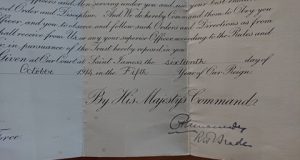 Officers and Men serving under you and use your best endeav
Order and Discipline. And We do hereby Command them to Obey you
Officer, and you to observe and follow such Orders and Directions as from
shall receive from Us, or any your superior Officer according to the Rules and
in pursuance of the Trust hereby reposed in you
Given at Our Court at Saint James's the sixteenth day of
October 1914 in the Fifth Year of Our Reign
By His Majesty's Command
Force